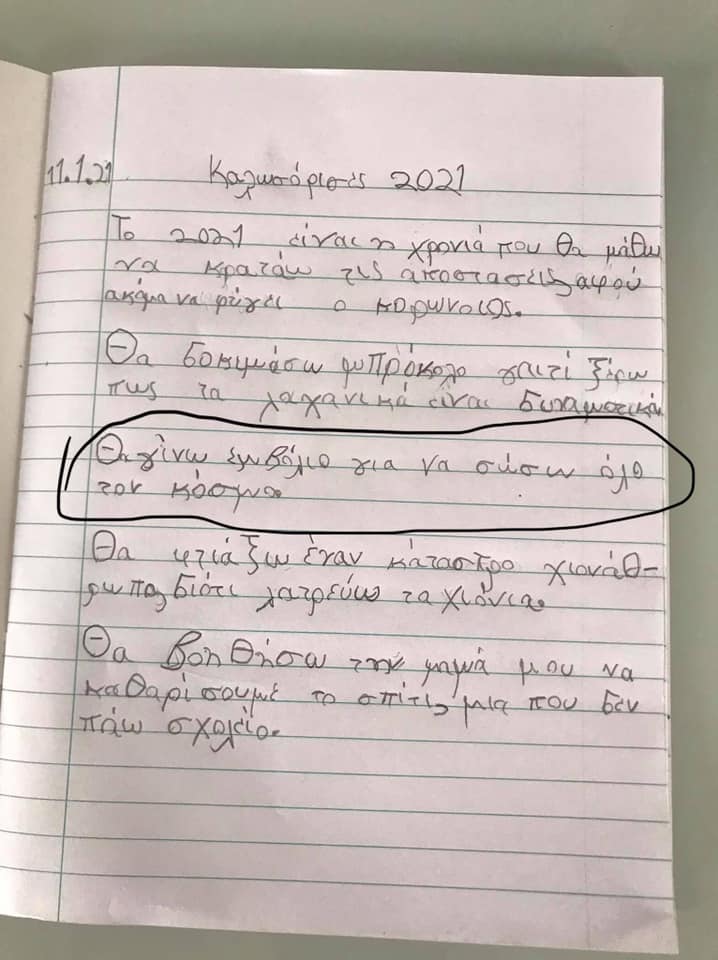 11.1.21 Καλωσόρισες 2021
Το 2021 είναι η χρονιά που θα μάθω
να κρατάω τις αποστασεις αφού
ακόμα να φύγει ο κορωνοιος.
Θα δοκιμάσω μπρόκολο γιατί ξέρω
πως τα λαχανικά είναι δυναμωτικά
Θα γίνω εμβόλιο για να σώσω όλο
τον κόσμο.
Θα φτιάξω έναν κάτασπρο χιονάθ-
ρωπο διότι λατρεύω τα χιόνια.
Θα βοηθήσω την μαμά μου να
καθαρίσουμε το σπίτι, μια που δεν
πάω σχολείο.